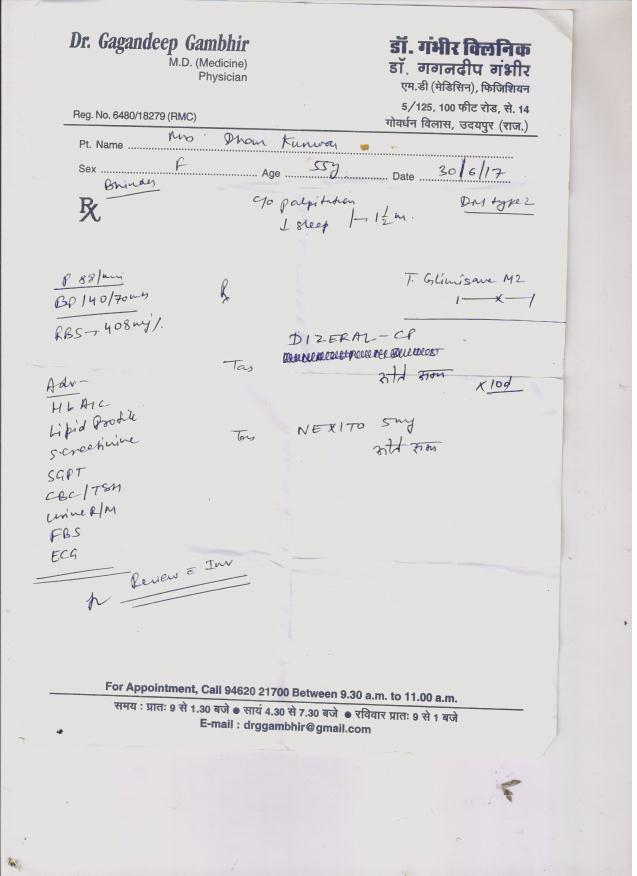 Dr. Gagandeep Gambhir
M.D. (Medicine)
Physician
Reg. No. 6480/18279 (RMC)
डॉ. गंभीर क्लिनिक
डॉ. गगनदीप गंभीर
एम.डी (मेडिसिन), फिजिशियन
5/125, 100 फीट रोड, से. 14
गोवर्धन विलास, उदयपुर (राज.)
Pt. Name Mrs. Dhan Kunwar
Sex F Age 55y Date 30/6/17
Bhinder
Rx
c/o palpitation
↓ sleep 1½ m.
DM type 2
P 88/min
BP 140/70
RBS → 408mg%
Rx
T. Glimisave M2
1—x—1
DIZERAL-CP
x 10d
NEXITO 5mg
Adv-
Lipid Profile
SGPT
CBC/TSH
Urine R/M
FBS
ECG
Review c̄ Inv
For Appointment, Call 94620 21700 Between 9.30 a.m. to 11.00 a.m.
समय : प्रातः 9 से 1.30 बजे ● सायं 4.30 से 7.30 बजे ● रविवार प्रातः 9 से 1 बजे
E-mail : drggambhir@gmail.com